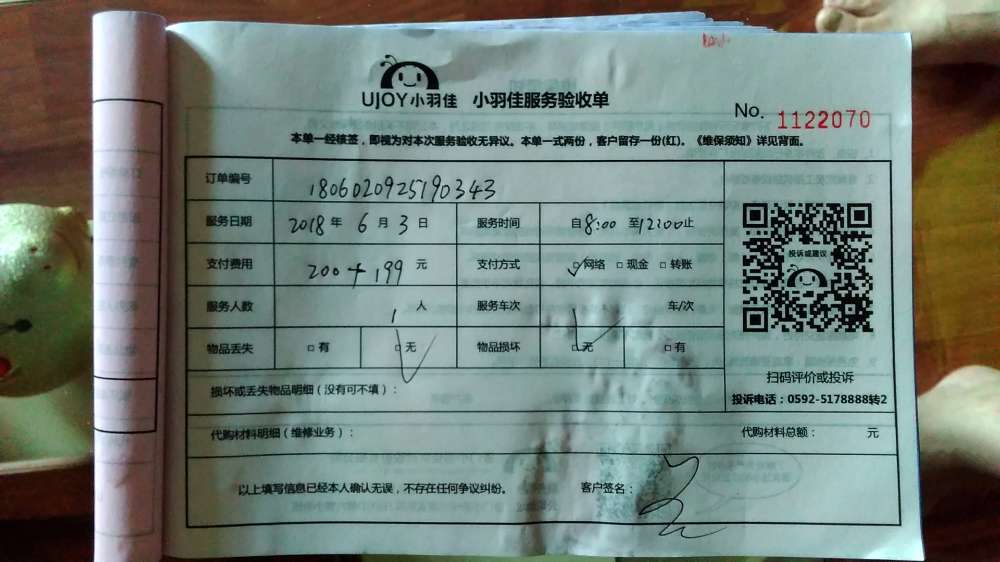 UJOY小羽佳 小羽佳服务验收单
No. 1122070
本单一经核签，即视为对本次服务验收无异议。本单一式两份，客户留存一份(红)。《维保须知》详见背面。
订单编号 180602092519034​3
服务日期 2018年 6月 3日 服务时间 自8:00至12:00止
投诉或建议
支付费用 200+199 元 支付方式 □网络 □现金 □转账
服务人数 1 人 服务车次 车/次
物品丢失 □有 □无 物品损坏 □无 □有
扫码评价或投诉
损坏或丢失物品明细（没有可不填）：
投诉电话：0592-5178888转2
代购材料明细（维修业务）： 代购材料总额： 元
以上填写信息已经本人确认无误，不存在任何争议纠纷。 客户签名：